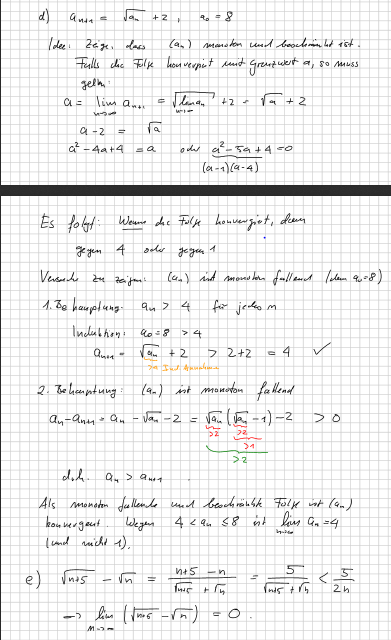 d) a_{n+1} = √a_n + 2 , a_0 = 8
Idee: Zeige, dass (a_n) monoton und beschränkt ist.
Falls die Folge konvergiert mit Grenzwert a, so muss
gelten:
a = lim_{n→∞} a_{n+1} = √(lim_{n→∞} a_n) + 2 = √a + 2
a - 2 = √a
a² - 4a + 4 = a oder a² - 5a + 4 = 0
(a-1)(a-4)
Es folgt: Wenn die Folge konvergiert, dann
gegen 4 oder gegen 1
Versuche zu zeigen: (a_n) ist monoton fallend (denn a_0=8)
1. Behauptung: a_n > 4 für jedes n
Induktion: a_0 = 8 > 4
a_{n+1} = √a_n + 2 > 2+2 = 4 ✓
>2 Ind. Annahme
2. Behauptung: (a_n) ist monoton fallend
a_n - a_{n+1} = a_n - √a_n - 2 = √a_n (√a_n - 1) - 2 > 0
>2 >2
>1
>2
d.h. a_n > a_{n+1}
Als monoton fallende und beschränkte Folge ist (a_n)
konvergent. Wegen 4 < a_n ≤ 8 ist lim_{n→∞} a_n = 4
(und nicht 1).
e) √(n+5) - √n = (n+5 - n)/(√(n+5) + √n) = 5/(√(n+5) + √n) < 5/(2√n)
→ lim_{n→∞} (√(n+5) - √n) = 0.